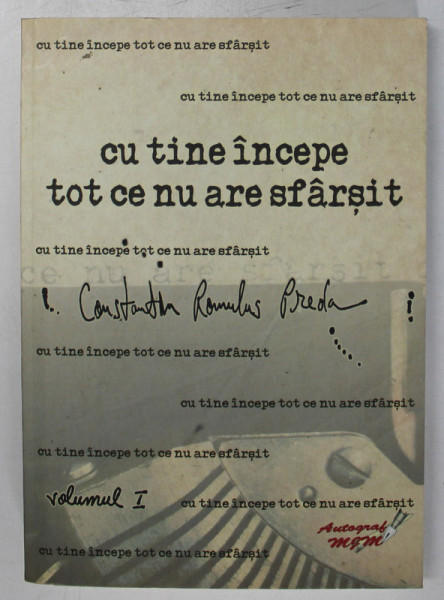 cu tine începe tot ce nu are sfârșit
cu tine începe tot ce nu are sfârșit
cu tine începe
tot ce nu are sfârșit
cu tine începe tot ce nu are sfârșit
ce nu are sfârșit
!.. Constantin Romulus Preda !
cu tine începe tot ce nu are sfârșit
cu tine începe tot ce nu are sfârșit
cu tine începe tot ce nu are sfârșit
volumul I
cu tine începe tot ce nu are sfârșit
Autograf
MJM
cu tine începe tot ce nu are sfârșit